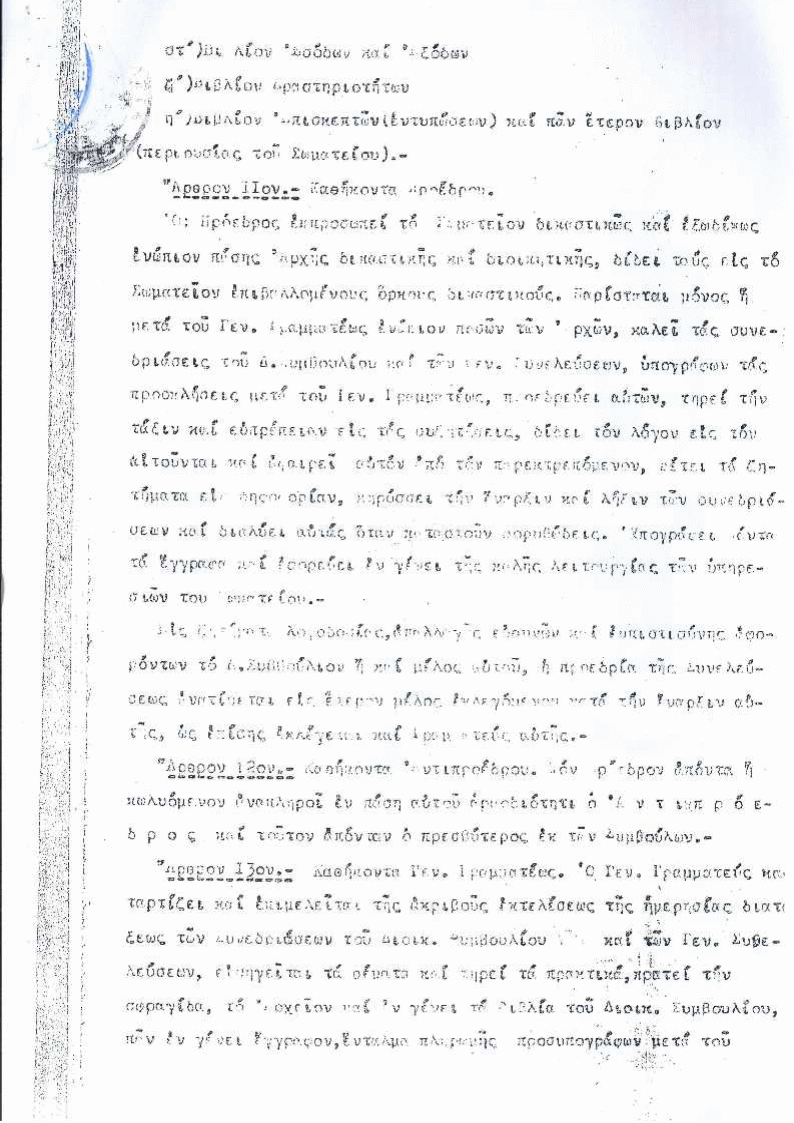 στ΄)Βι λίον Ἐσόδων καί Ἐξόδων
ζ΄)Βιβλίον Δραστηριοτήτων
η΄)Βιβλίον Ἐπισκεπτῶν(ἐντυπώσεων) καί πᾶν ἕτερον βιβλίον
(περιουσίας τοῦ Σωματείου).-
Ἄρθρον 11ον.- Καθήκοντα Προέδρου.
Ὁ: Πρόεδρος ἐκπροσωπεῖ τό Σωματεῖον δικαστικῶς καί ἐξωδίκως
ἐνώπιον πάσης Ἀρχῆς δικαστικῆς καί διοικητικῆς, δίδει τούς εἰς τό
Σωματεῖον ἐπιβαλλομένους ὅρκους δικαστικούς. Παρίσταται μόνος ἤ
μετά τοῦ Γεν. Γραμματέως ἐνώπιον πασῶν τῶν Ἀρχῶν, καλεῖ τάς συνε-
δριάσεις τοῦ Δ.Συμβουλίου καί τῶν Γεν. Συνελεύσεων, ὑπογράφων τάς
προσκλήσεις μετά τοῦ Γεν. Γραμματέως, προεδρεύει αὐτῶν, τηρεῖ τήν
τάξιν καί εὐπρέπειαν εἰς τάς συζητήσεις, δίδει τόν λόγον εἰς τόν
αἰτοῦνται καί ἀφαιρεῖ αὐτόν ἀπό τόν παρεκτρεπόμενον, θέτει τά ζη-
τήματα εἰς ψηφοφορίαν, κηρύσσει τήν ἔναρξιν καί λῆξιν τῶν συνεδριά-
σεων καί διαλύει αὐτάς ὅταν καταστοῦν θορυβώδεις. Ὑπογράφει πάντα
τά ἔγγραφα καί ἐφορεύει ἐν γένει τῆς καλῆς λειτουργίας τῶν ὑπηρε-
σιῶν του Σωματείου.-
Εἰς ζητήματα λογοδοσίας,ἀπαλλαγῆς εὐθυνῶν καί ἐμπιστοσύνης ἀφο-
ρώντων τό Δ.Συμβούλιον ἤ καί μέλος αὐτοῦ, ἡ προεδρία τῆς Συνελεύ-
σεως ἀνατίθεται εἰς ἕτερον μέλος ἐκλεγόμενον κατά τήν ἔναρξιν αὐ-
τῆς, ὡς ἐπίσης ἐκλέγεται καί Γραμματεύς αὐτῆς.-
Ἄρθρον 12ον.- Καθήκοντα Ἀντιπροέδρου. Τόν Πρόεδρον ἀπόντα ἤ
κωλυόμενον ἀναπληροῖ ἐν πάσῃ αὐτοῦ ἁρμοδιότητι ὁ Ἀ ν τ ι π ρ ό ε-
δ ρ ο ς καί τοῦτον ἀπόνταν ὁ πρεσβύτερος ἐκ τῶν Συμβούλων.-
Ἄρθρον 13ον.- Καθήκοντα Γεν. Γραμματέως. Ὁ Γεν. Γραμματεύς κα
ταρτίζει καί ἐπιμελεῖται τῆς ἀκριβοῦς ἐκτελέσεως τῆς ἡμερησίας διατά
ξεως τῶν Συνεδριάσεων τοῦ Διοικ. Συμβουλίου καί τῶν Γεν. Συθε-
λεύσεων, εἰσηγεῖται τά θέματα καί τηρεῖ τά πρακτικά,κρατεῖ τήν
σφραγῖδα, τό Ἀρχεῖον καί ἐν γένει τά Βιβλία τοῦ Διοικ. Συμβουλίου,
πᾶν ἐν γένει ἔγγραφον,ἔνταλμα πληρωμῆς προσυπογράφων μετά τοῦ